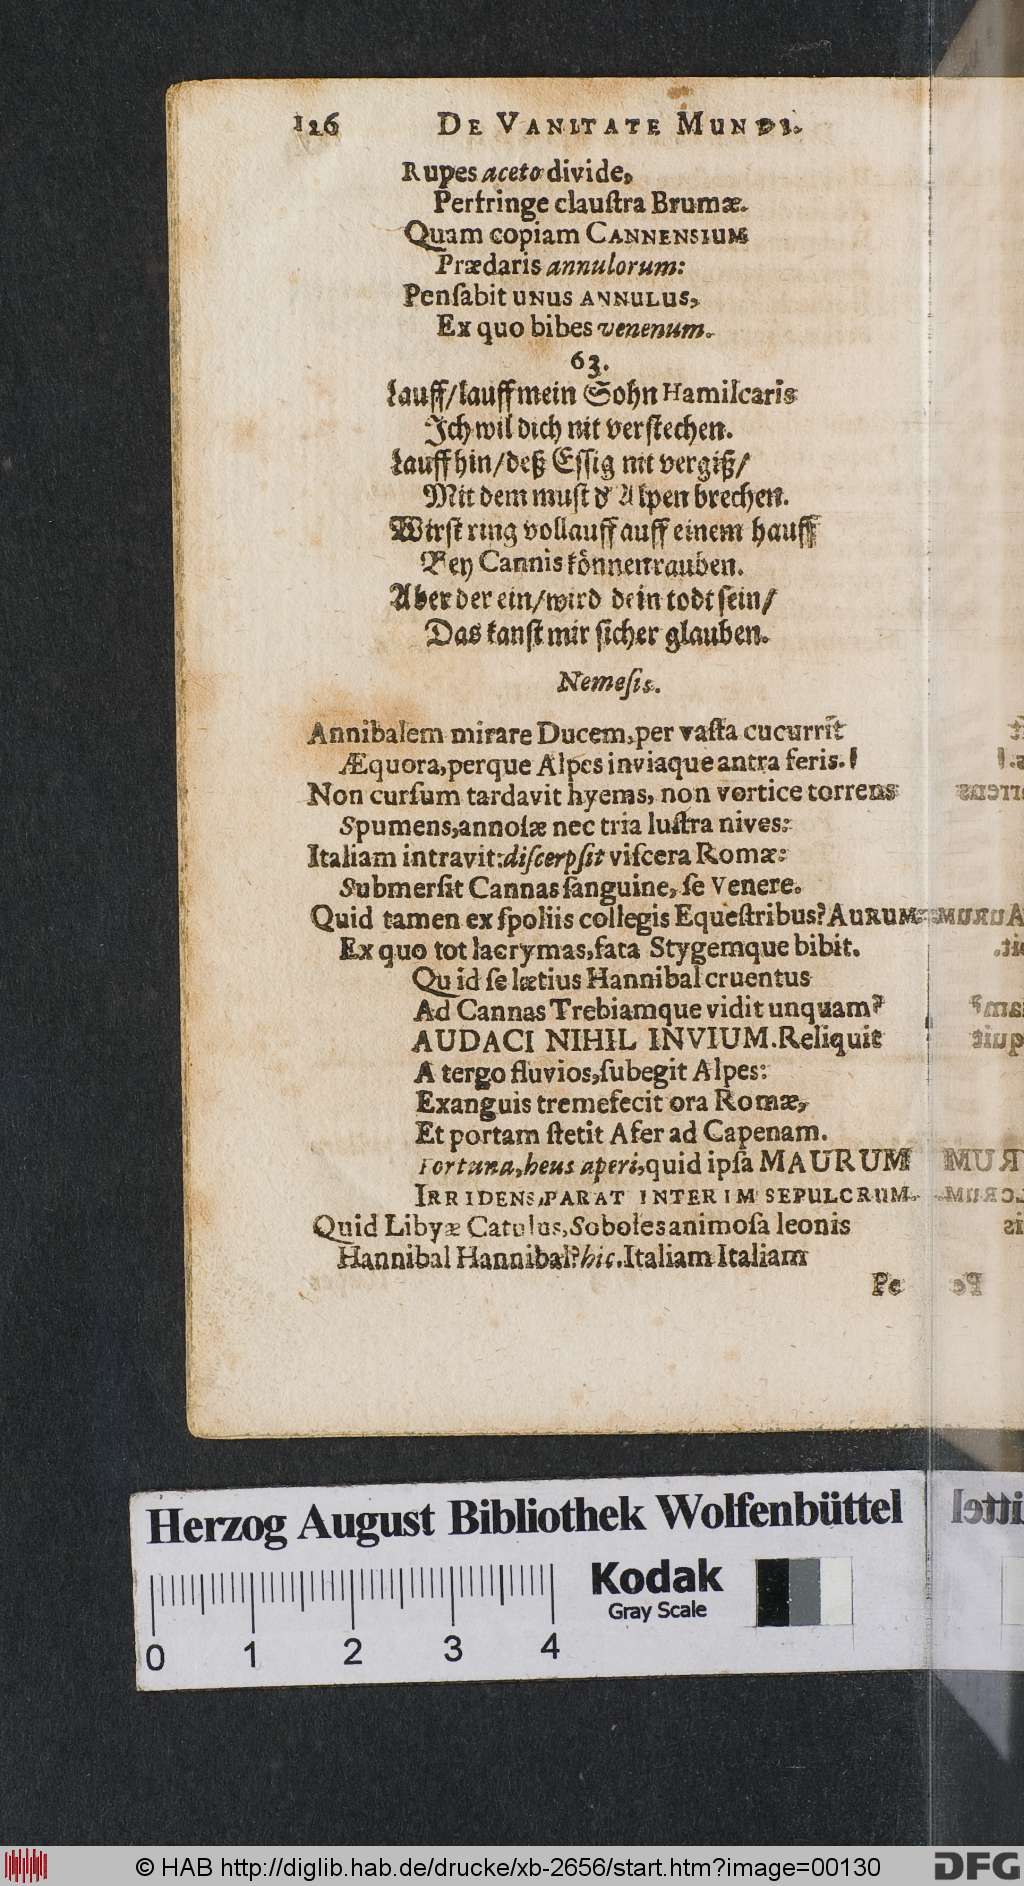 126 DE VANITATE MUNDI.
Rupes aceto divide,
Perfringe clauſtra Brumæ.
Quam copiam CANNENSIUM
Prædaris annulorum:
Penſabit UNUS ANNULUS,
Ex quo bibes venenum.
63.
Lauff/lauff mein Sohn Hamilcaris
Ich wil dich nit verſtechen.
Lauff hin/deß Eſſig nit vergiß/
Mit dem muſt d' Alpen brechen.
Wirſt ring vollauff auff einem hauff
Bey Cannis koͤnnen rauben.
Aber der ein/wird dein todt ſein/
Das kanſt mir ſicher glauben.
Nemeſis.
Annibalem mirare Ducem, per vaſta cucurrit
Æquora, perque Alpes inviaque antra feris.
Non curſum tardavit hyems, non vortice torrens
Spumens, annoſæ nec tria luſtra nives:
Italiam intravit: diſcerpſit viſcera Romæ:
Submerſit Cannas ſanguine, ſe Venere.
Quid tamen ex ſpoliis collegis Equeſtribus? AURUM:
Ex quo tot lacrymas, fata Stygemque bibit.
Quid ſe lætius Hannibal cruentus
Ad Cannas Trebiamque vidit unquam?
AUDACI NIHIL INVIUM. Reliquit
A tergo fluvios, ſubegit Alpes:
Exanguis tremefecit ora Romæ,
Et portam ſtetit Afer ad Capenam.
Fortuna, heus aperi, quid ipſa MAURUM
IRRIDENS, PARAT INTERIM SEPULCRUM.
Quid Libyæ Catulus, Soboles animoſa leonis
Hannibal Hannibal? hic. Italiam Italiam
Pe
Herzog August Bibliothek Wolfenbüttel
Kodak
Gray Scale
0 1 2 3 4
© HAB http://diglib.hab.de/drucke/xb-2656/start.htm?image=00130
DFG